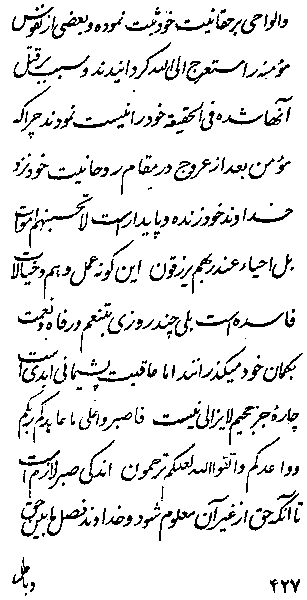 والواحی بر حقانیت خود ثبت نموده و بعضی از نفوس
مؤمنه را مستعرج الی الله گردانیدند و سبب بر قتل
آنها شده فی الحقیقه خود را نیست نمودند چرا که
مؤمن بعد از عروج در مقام روحانیت خود نزد
خداوند خود زنده و پایدار است لا تحسبنهم امواتا
بل احیاء عند ربهم یرزقون این گونه عمل و هم و خیالات
فاسده است بلی چند روزی بتنعم در فاه و نعمت
بگمان خود میگذرانند اما عاقبت پشیمانی ابدی است
چارهٔ جز جحیم لایزالی نیست فاصبروا علی ما عاهدکم ربکم
و واعدکم و اتقوا الله لعلکم ترحمون اندکی صبر لازم است
تا آنکه حق از غیر آن معلوم شود و خداوند فصل ما بین حق
و باطل
۴۲۷